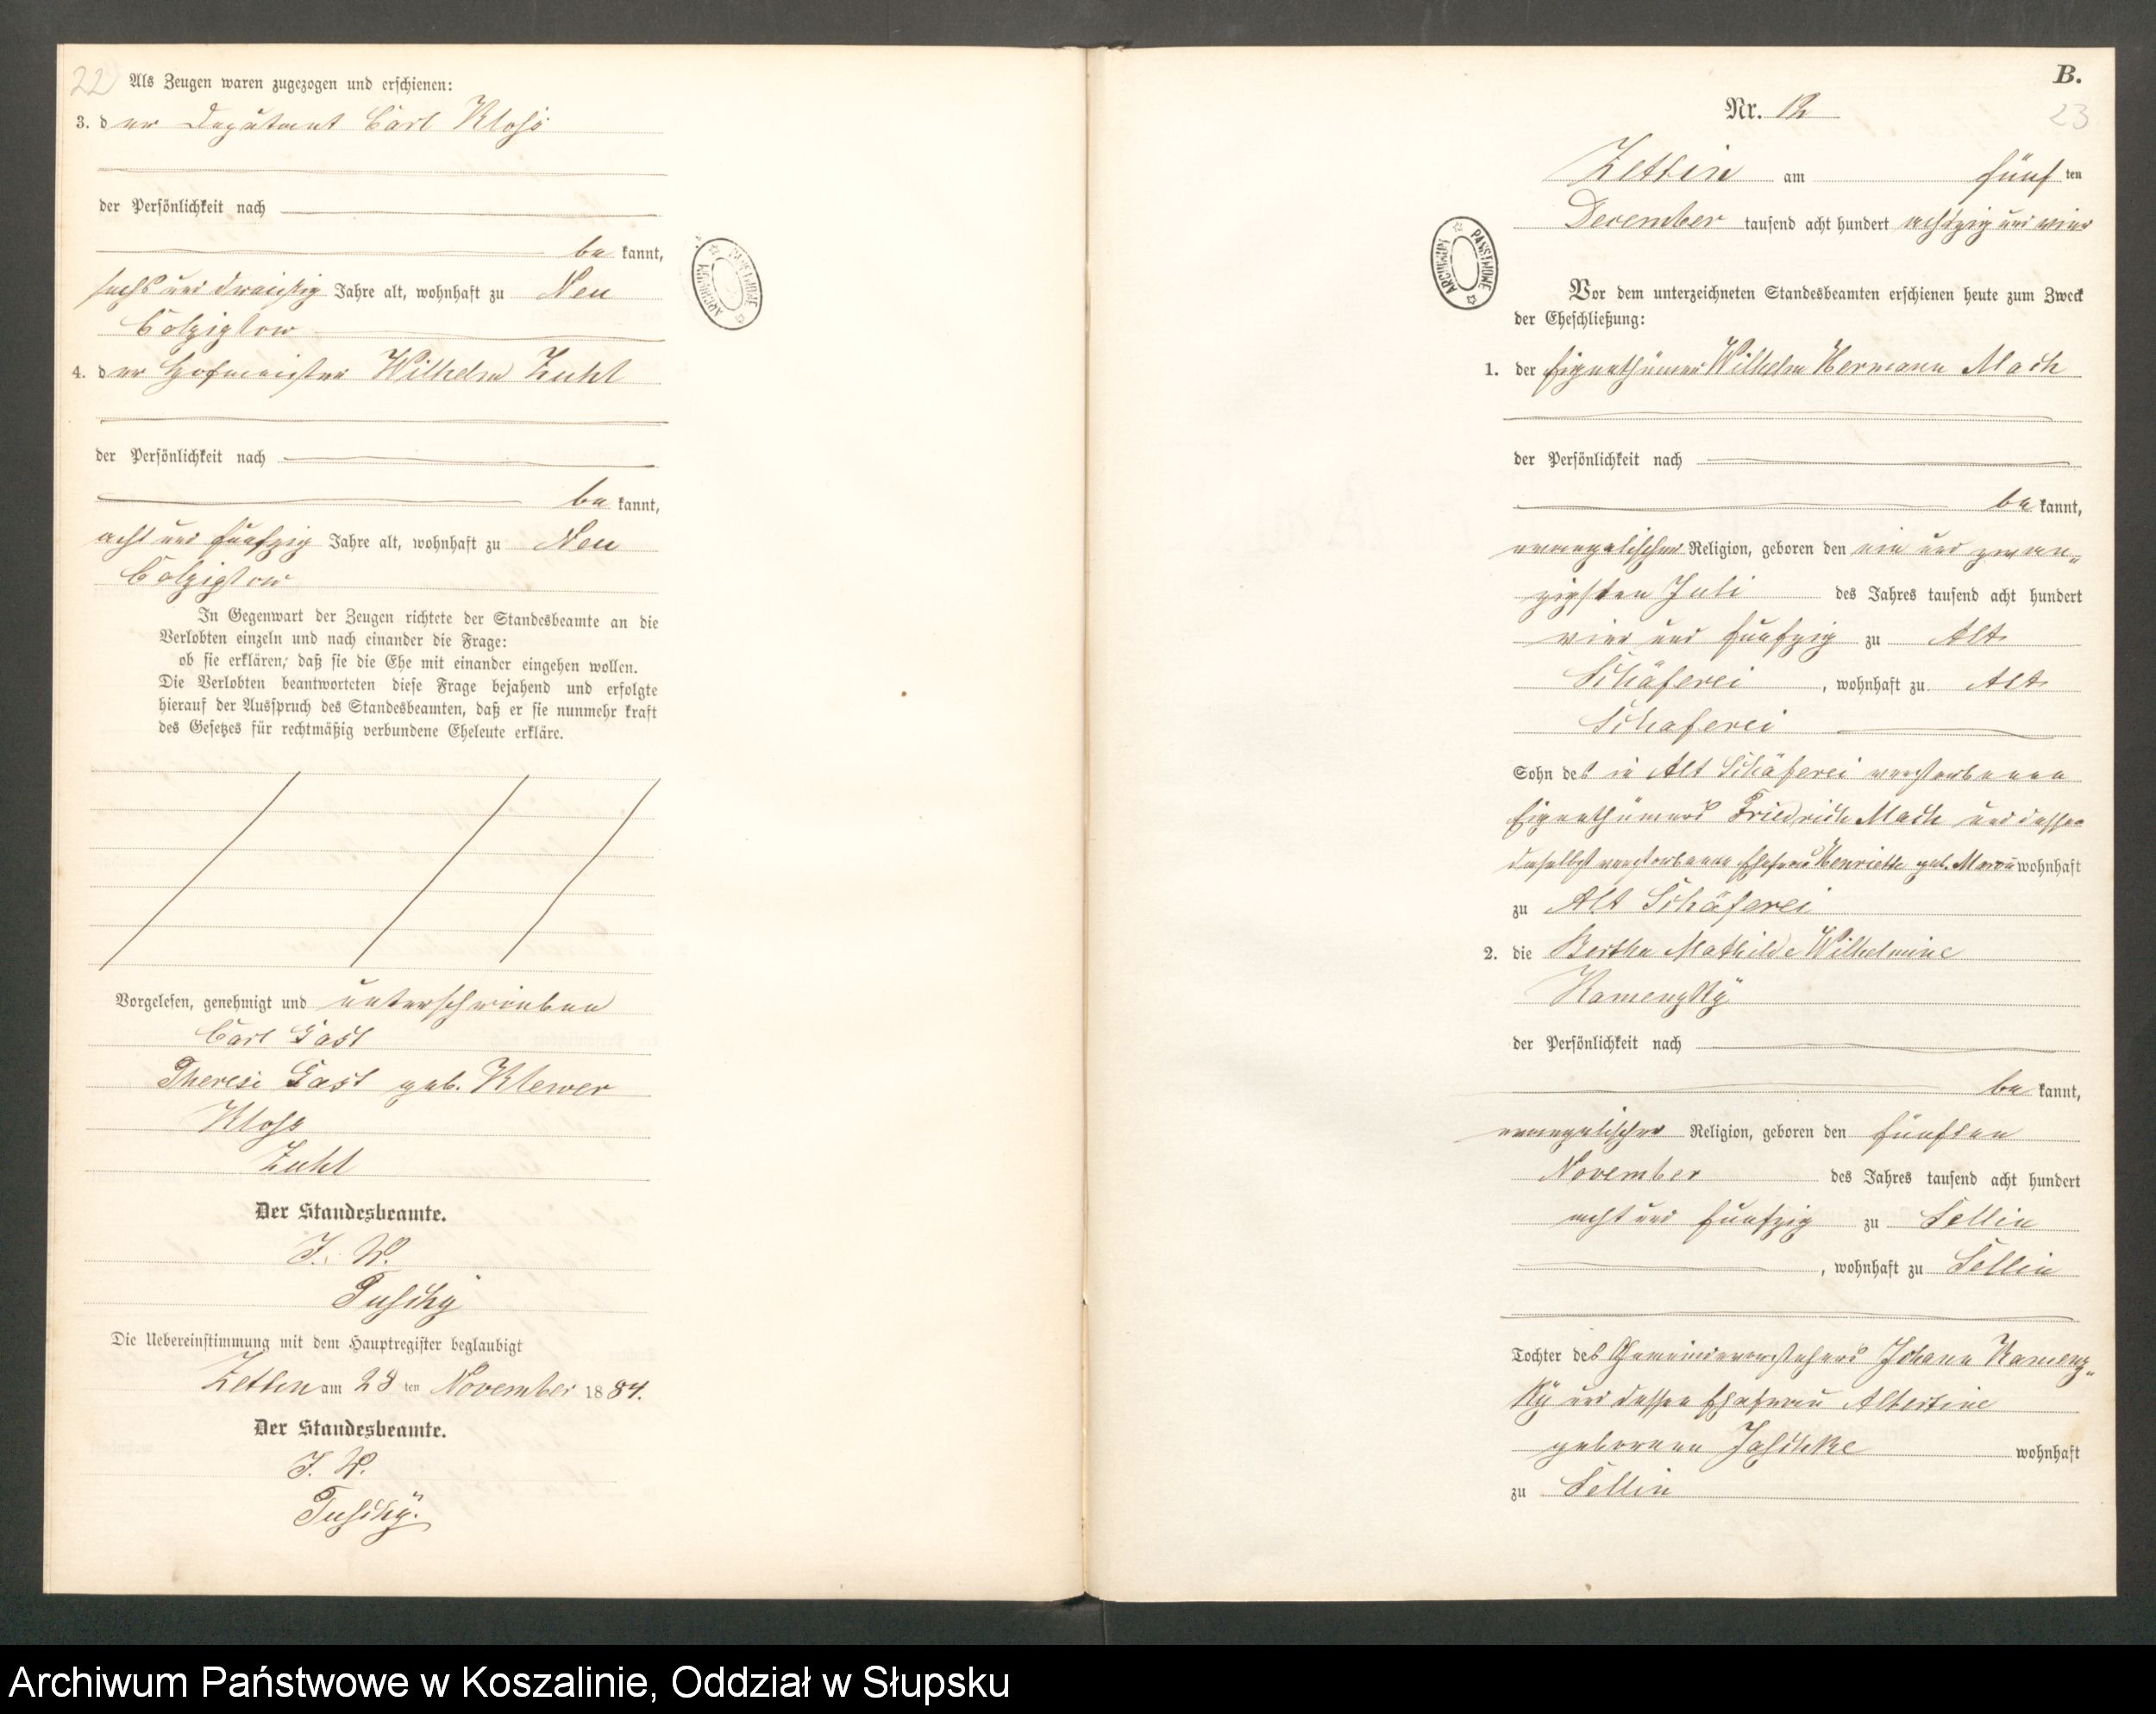 22
Als Zeugen waren zugezogen und erschienen:
3. der Deputant Carl Kloss
der Persönlichkeit nach
bekannt,
sechs und dreißig Jahre alt, wohnhaft zu Neu
Colziglow
4. der Hofmeister Wilhelm Zuhl
der Persönlichkeit nach
bekannt,
acht und fünfzig Jahre alt, wohnhaft zu Neu
Colziglow
In Gegenwart der Zeugen richtete der Standesbeamte an die
Verlobten einzeln und nach einander die Frage:
ob sie erklären, daß sie die Ehe mit einander eingehen wollen.
Die Verlobten beantworteten diese Frage bejahend und erfolgte
hierauf der Ausspruch des Standesbeamten, daß er sie nunmehr kraft
des Gesetzes für rechtmäßig verbundene Eheleute erkläre.
Vorgelesen, genehmigt und unterschrieben
Carl Gast
Therese Gast geb. Klewer
Kloss
Zuhl
Der Standesbeamte.
I. V.
Die Uebereinstimmung mit dem Hauptregister beglaubigt
Zettin am 28 ten November 1884.
Der Standesbeamte.
I. V.
B.
Nr. 12
23
Zettin am fünften
December tausend acht hundert achtzig und vier
Vor dem unterzeichneten Standesbeamten erschienen heute zum Zweck
der Eheschließung:
1. der Eigenthümer Wilhelm Hermann Mach
der Persönlichkeit nach
bekannt,
evangelischer Religion, geboren den ein und zwan-
zigsten Juli des Jahres tausend acht hundert
vier und fünfzig zu Alt
Schäferei, wohnhaft zu Alt
Schäferei
Sohn des in Alt Schäferei verstorbenen
Eigenthümers Friedrich Mach und dessen
daselbst verstorbenen Ehefrau Henriette geb. wohnhaft
zu Alt Schäferei
2. die Bertha Mathilde Wilhelmine
Kamenzky
der Persönlichkeit nach
bekannt,
evangelischer Religion, geboren den fünften
November des Jahres tausend acht hundert
acht und fünfzig zu Sellin
, wohnhaft zu Sellin
Tochter des Gemeindevorstehers Johann Kamenz-
ky und dessen Ehefrau Albertine
geborenen Jaschke wohnhaft
zu Sellin
ARCHIWUM PAŃSTWOWE
ARCHIWUM PAŃSTWOWE
Archiwum Państwowe w Koszalinie, Oddział w Słupsku